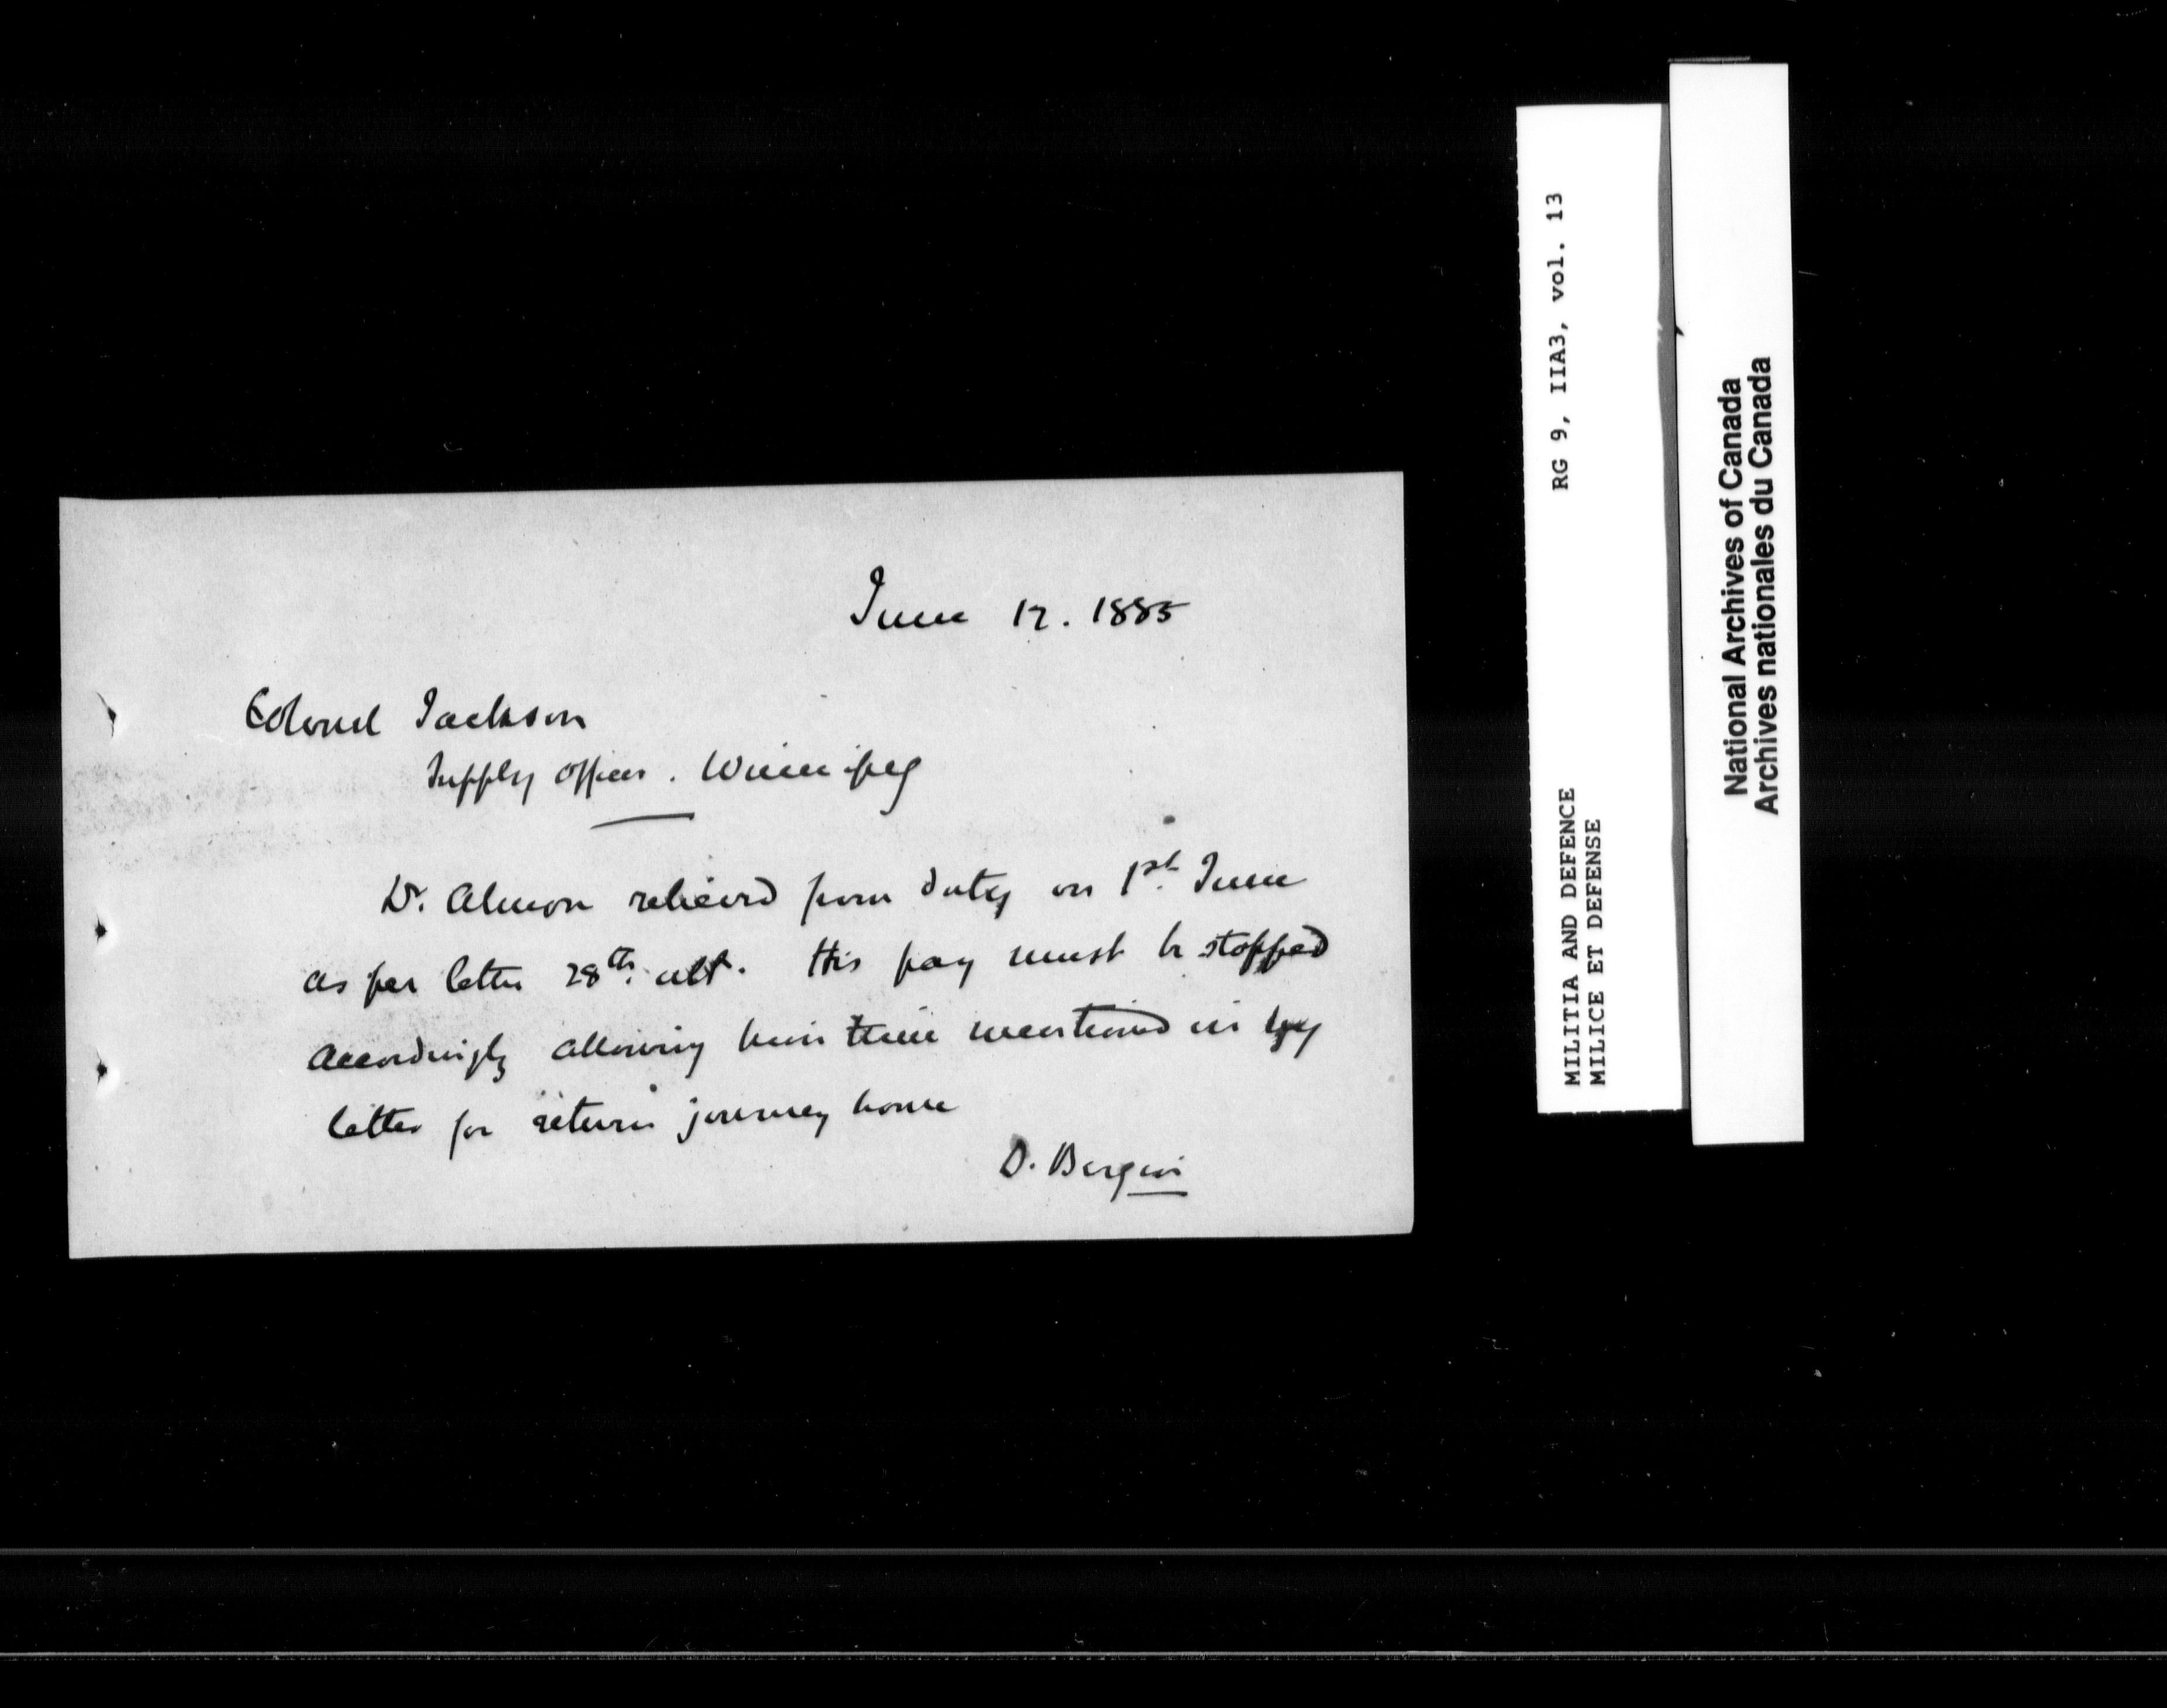 June 17. 1885
Colonel Jackson
Supply Officer. Winnipeg
Dr. Almon relieved from duty on 1st. June
as per letter 28th. ult. His pay must be stopped
accordingly allowing him time mentioned in my
letter for return journey home
D. Bergin
RG 9, IIA3, vol. 13
MILITIA AND DEFENCE
MILICE ET DEFENSE
National Archives of Canada
Archives nationales du Canada